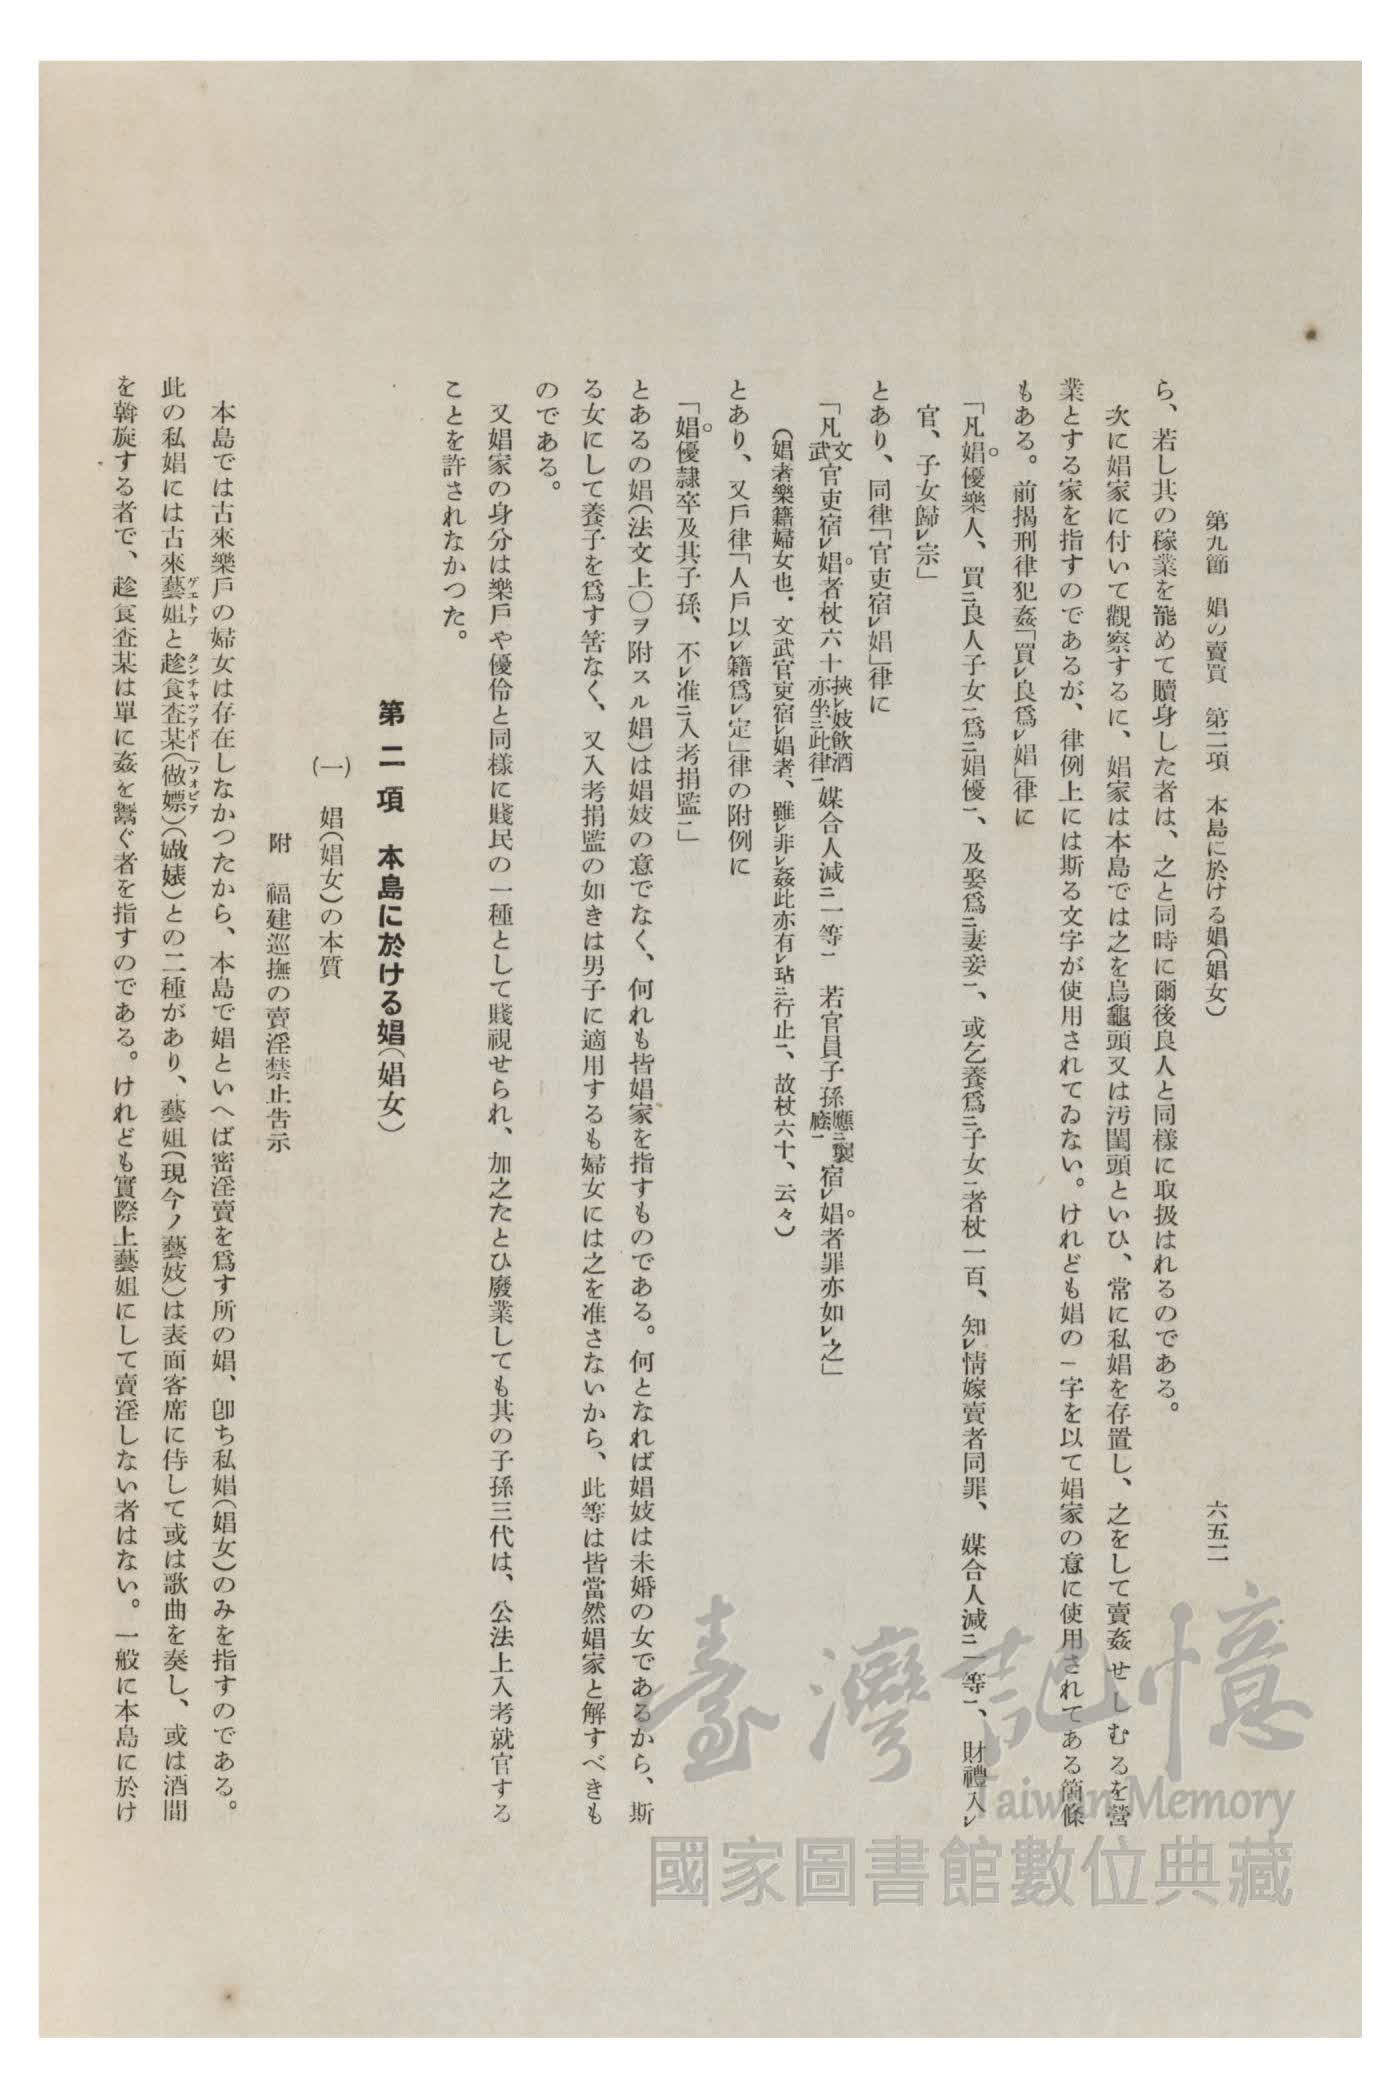 第九節　娼の賣買　第二項　本島に於ける娼(娼女)　六五二
ら、若し其の稼業を罷めて贖身した者は、之と同時に爾後良人と同樣に取扱はれるのである。
次に娼家に付いて觀察するに、娼家は本島では之を烏龜頭又は汚閨頭といひ、常に私娼を存置し、之をして賣姦せしむるを營
業とする家を指すのであるが、律例上には斯る文字が使用されてゐない。けれども娼の一字を以て娼家の意に使用されてある箇條
もある。前揭刑律犯姦「買レ良爲レ娼」律に
「凡娼優樂人、買ニ良人子女一爲ニ娼優一、及娶爲ニ妻妾一、或乞養爲ニ子女一者杖一百、知レ情嫁賣者同罪、媒合人減ニ一等一、財禮入レ
官、子女歸レ宗」
とあり、同律「官吏宿レ娼」律に
「凡文武官吏宿レ娼者杖六十挾レ妓飮酒亦坐ニ此律一媒合人減ニ一等一　若官員子孫應ニ襲廕一宿レ娼者罪亦如レ之」
(娼者樂籍婦女也．文武官吏宿レ娼者、雖レ非レ姦此亦有レ玷ニ行止一、故杖六十、云々)
とあり、又戶律「人戶以レ籍爲レ定」律の附例に
「娼優隷卒及其子孫、不レ准ニ入考捐監一」
とあるの娼(法文上〇ヲ附スル娼)は娼妓の意でなく、何れも皆娼家を指すものである。何となれば娼妓は未婚の女であるから、斯
る女にして養子を爲す筈なく、又入考捐監の如きは男子に適用するも婦女には之を准さないから、此等は皆當然娼家と解すべきも
のである。
又娼家の身分は樂戶や優伶と同樣に賤民の一種として賤視せられ、加之たとひ廢業しても其の子孫三代は、公法上入考就官する
ことを許されなかつた。
第二項　本島に於ける娼(娼女)
(一)　娼(娼女)の本質
附　福建巡撫の賣淫禁止告示
本島では古來樂戶の婦女は存在しなかつたから、本島で娼といへば密淫賣を爲す所の娼、卽ち私娼(娼女)のみを指すのである。
此の私娼には古來藝姐と趁食査某(做嫖)(做婊)との二種があり、藝姐(現今ノ藝妓)は表面客席に侍して或は歌曲を奏し、或は酒間
を斡旋する者で、趁食査某は單に姦を鬻ぐ者を指すのである。けれども實際上藝姐にして賣淫しない者はない。一般に本島に於け
臺灣記憶
Taiwan Memory
國家圖書館數位典藏